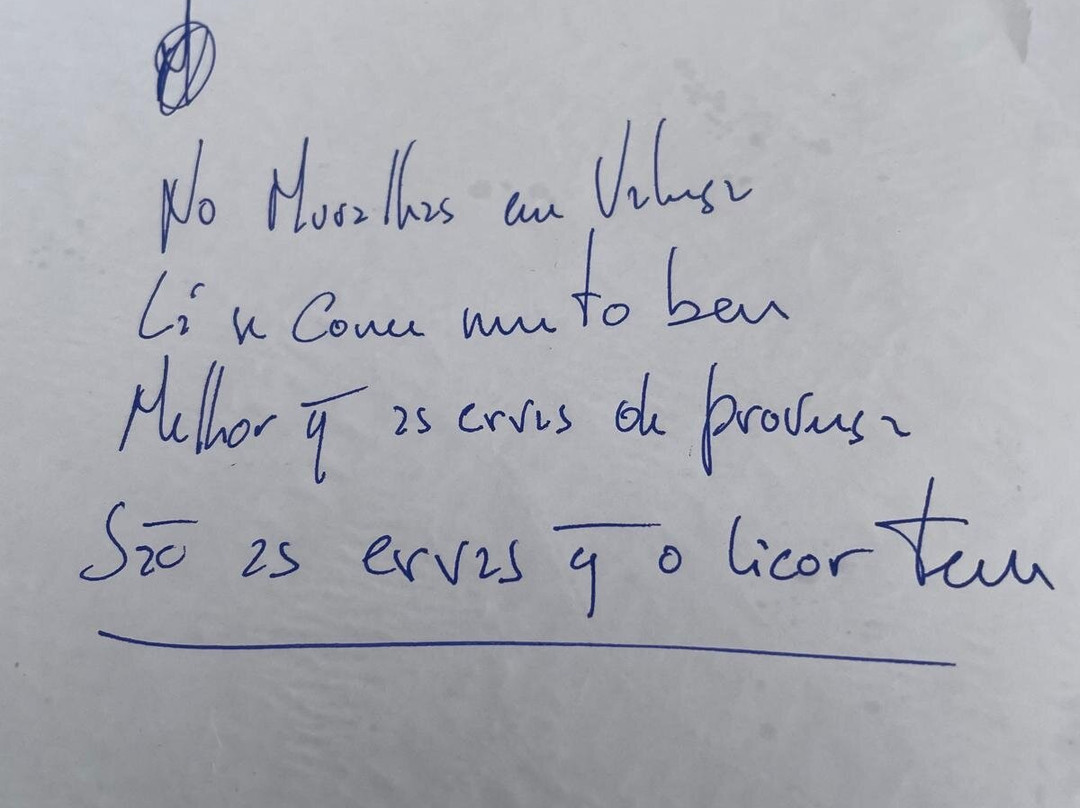 No Muralhas em Valença
Lá se Come muito bem
Melhor q̄ as ervas de provença
São as ervas q̄ o licor tem